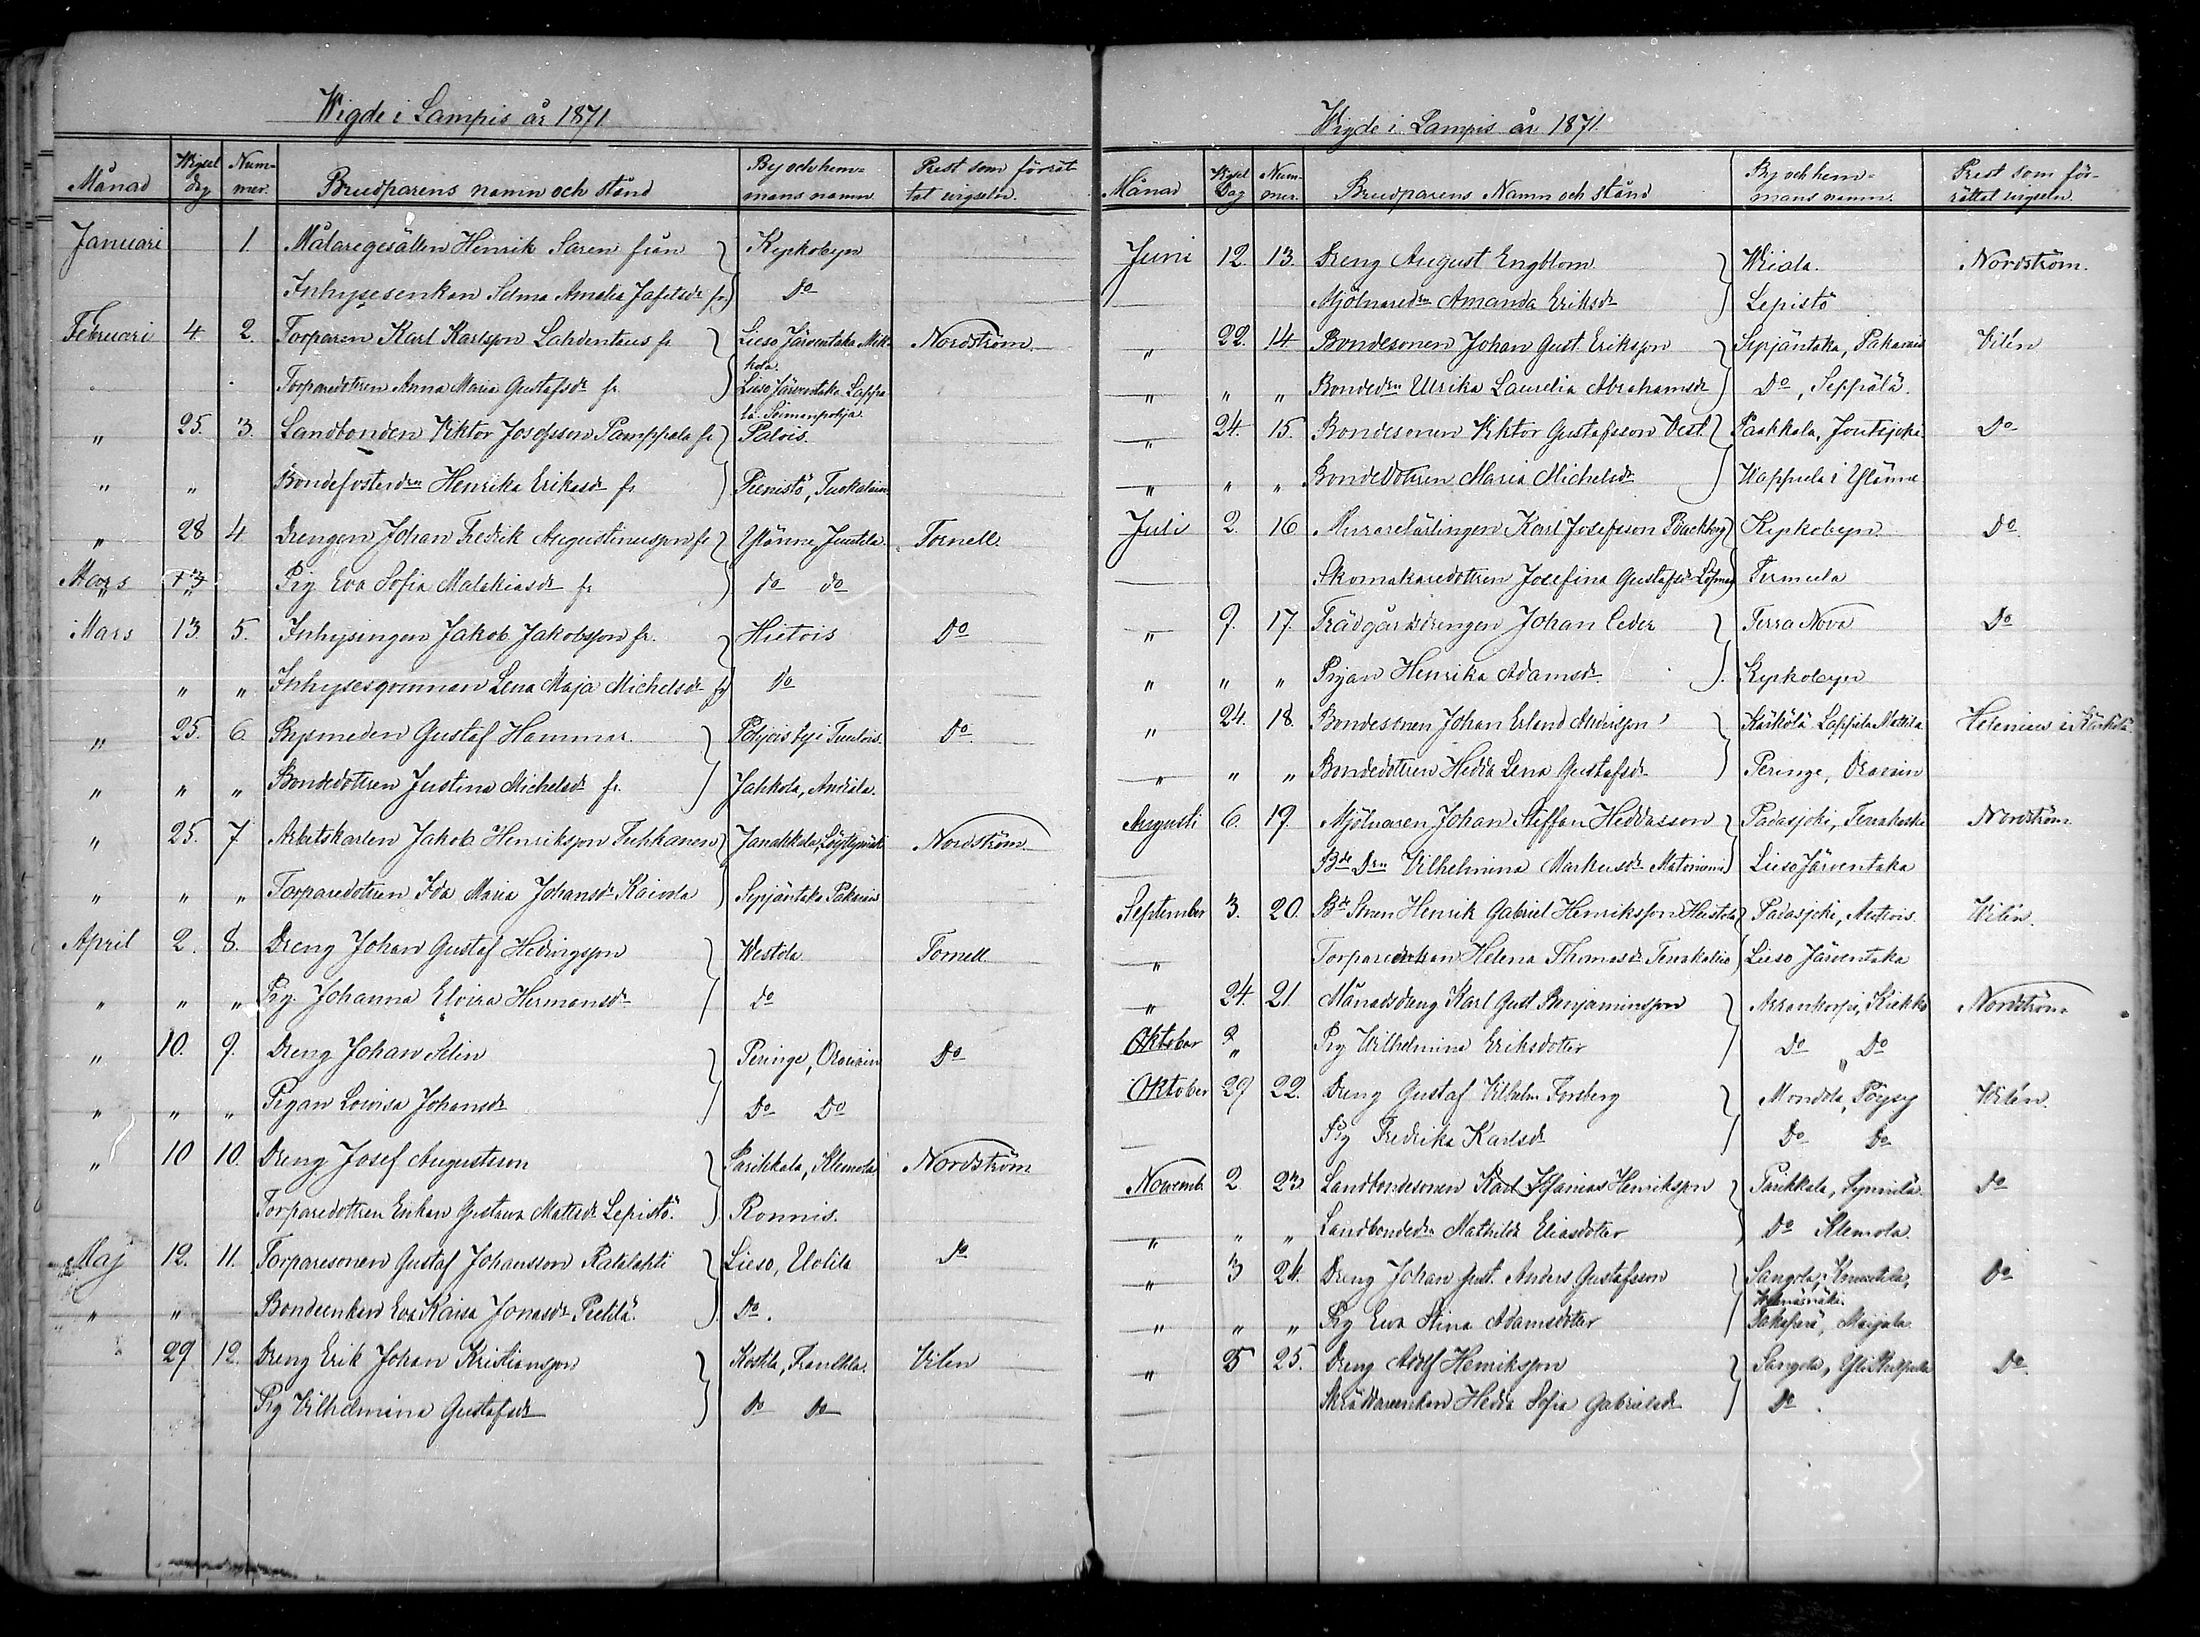 Wigde i Lampis år 1871.
Månad Wigsel dag Nummer. Brudparens namn och stånd By och hemmans namn Prest som förrättat vigseln.
Januari 1. Målaregesällen Henrik Saren från Kyrkobyn
Inhysesenkan Selma Amalia Jafetsdr fr. do
Februari 4. 2. Torparen Karl Karlsson Lahdentaus fr. Lieso Järventaka Mikkola. Nordström
Torparedottren Anna Maria Gustafsdr fr. Lieso Järventaka Lappala Soimanpohja
" 25. 3. Landbonden Viktor Josefsson Pamppala fr. Palois.
" " Bondefosterdrn Henrika Eriksdr fr. Pienistö,
" 28 4. Drengen Johan Fredrik Augustinusson fr. Ylänne Juutila Tornell.
Mars Pig Eva Sofia Malakiasdr fr. do do
Mars 13. 5. Inhysingen Jakob Jakobsson fr. Hietois Do
" " Inhysesqvinnan Lena Maja Michelsdr fr. do
" 25. 6. Gustaf Hammar Pohjois byi Tuulois. Do
" " " Bondedottren Justina Michelsdr fr. Jahkola, Andila.
" 25. 7 Arbetskarlen Jakob Henriksson Tuhkanen Janakkala, Nordström
" " " Torparedottren Ida Maria Johansdr Kaivola Syrjäntaka Pakarais
April 2. 8. Dreng Johan Gustaf Hedvigsson Westola Tornell
" " " Pig. Johanna Elvira Hermansdr do
" 10. 9. Dreng Johan Selin Peringe, Oravain Do
" " " Pigan Lovisa Johansdr Do Do
" 10 10. Dreng Josef Augustsson Parikkala, Klemola Nordström
Torparedottren Enkan Gustava Mattsdr Lepistö. Ronnis.
Maj 12. 11. Torparesonen Gustaf Johansson Ratalahti Lieso, Uotila do
" " Bondeenkan Eva Kaisa Jonasdr Pietilä. Do.
29. 12. Dreng Erik Johan Kristiansson Kostila, Vilen
Pig Vilhelmina Gustafsdr do do
Wigde i Lampis år 1871.
Månad Wigsel Dag Nummer. Brudparens Namn och stånd By och hemmans namn. Prest som förrättat vigseln.
Juni 12. 13. Dreng August Engblom Wiala. Nordström.
Mjölnaredrn Amanda Eriksdr Lepistö
" 22. 14 Bondesonen Johan Gust. Eriksson Syrjäntaka, Pakarais Vilén
" " " Bondedrn Ulrika Laurelia Abrahamsdr Do, Seppälä.
24. 15. Bondesonen Viktor Gustafsson Vest. Paakkala, Joutsjoki Do
" " " Bondedottren Maria Michelsdr Wappula i Ylänne
Juli 2. 16 Murarelärlingen Karl Josefsson Kyrkobyn Do
Skomakaredottren Josefina Gustafsdr Löfman Turmula
" 9. 17. Trädgårdsdrengen Johan Ceder Terra Nova Do
" " " Pigan Henrika Adamsdr. Kyrkobyn
" 24. 18. Bondesonen Johan Erland Andersson Kärkölä Lappila Mattila Helenius i Kärkölä.
" " " Bondedottren Hedda Lena Gustafsdr Peringe, Oravain
Augusti 6. 19. Mjölnaren Johan Steffan Heddasson Padasjoki, Nordström
Bde Drn Vilhelmina Markusdr Lieso Järventaka
September 3. 20. Bde Sonen Henrik Gabriel Henriksson Heistola Padasjoki, Vilén.
" Helena Thomasdr Lieso Järventaka
" 24. 21. Månadsdreng Karl Gust Benjaminsson Arrankorpi, Nordström
Oktober " Pig Wilhelmina Eriksdotter Do Do
Oktober 29 22. Dreng Gustaf Vilhelm Forsberg Montola, Pöysy Vilén.
Pig Fredrika Karlsdr Do Do
Novemb. 2 23 Landbondesonen Karl Henriksson Parikkala, Do
" " " Landbondedr. Mathilda Eliasdotter Do Klemola.
" 3 24. Dreng Johan Gust. Anders Gustafsson Sangola, Do
" " " Pig Eva Stina Adamsdotter Maijala
" 5 25. Dreng Adolf Henriksson Sangola, Do.
Skräddareenkan Hedda Sofia Gabrielsdr Do.